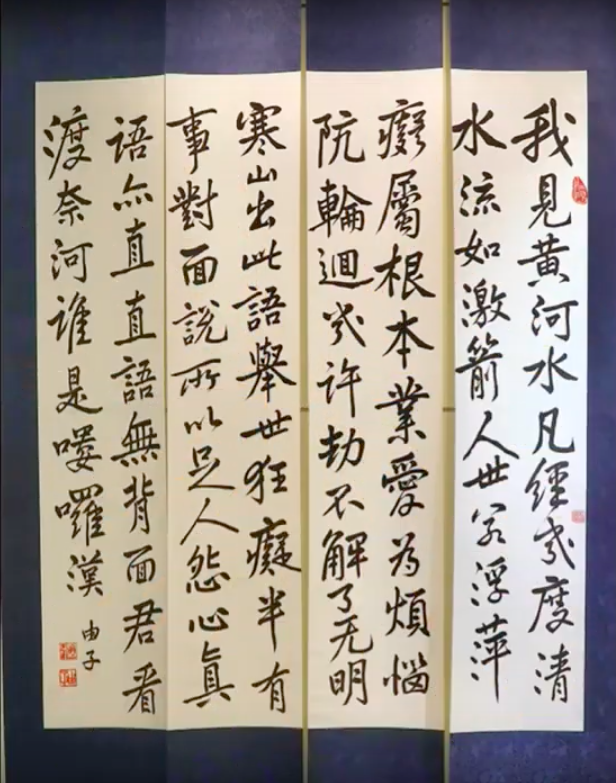 我見黃河水凡經幾度清
水流如激箭人世若浮萍
癡屬根本業愛为煩惱
阬輪迴幾許劫不解了无明
寒山出此語舉世狂癡半有
事對面說所以足人怨心真
語亦直直語無背面君看
渡奈河谁是嘍囉漢
由子